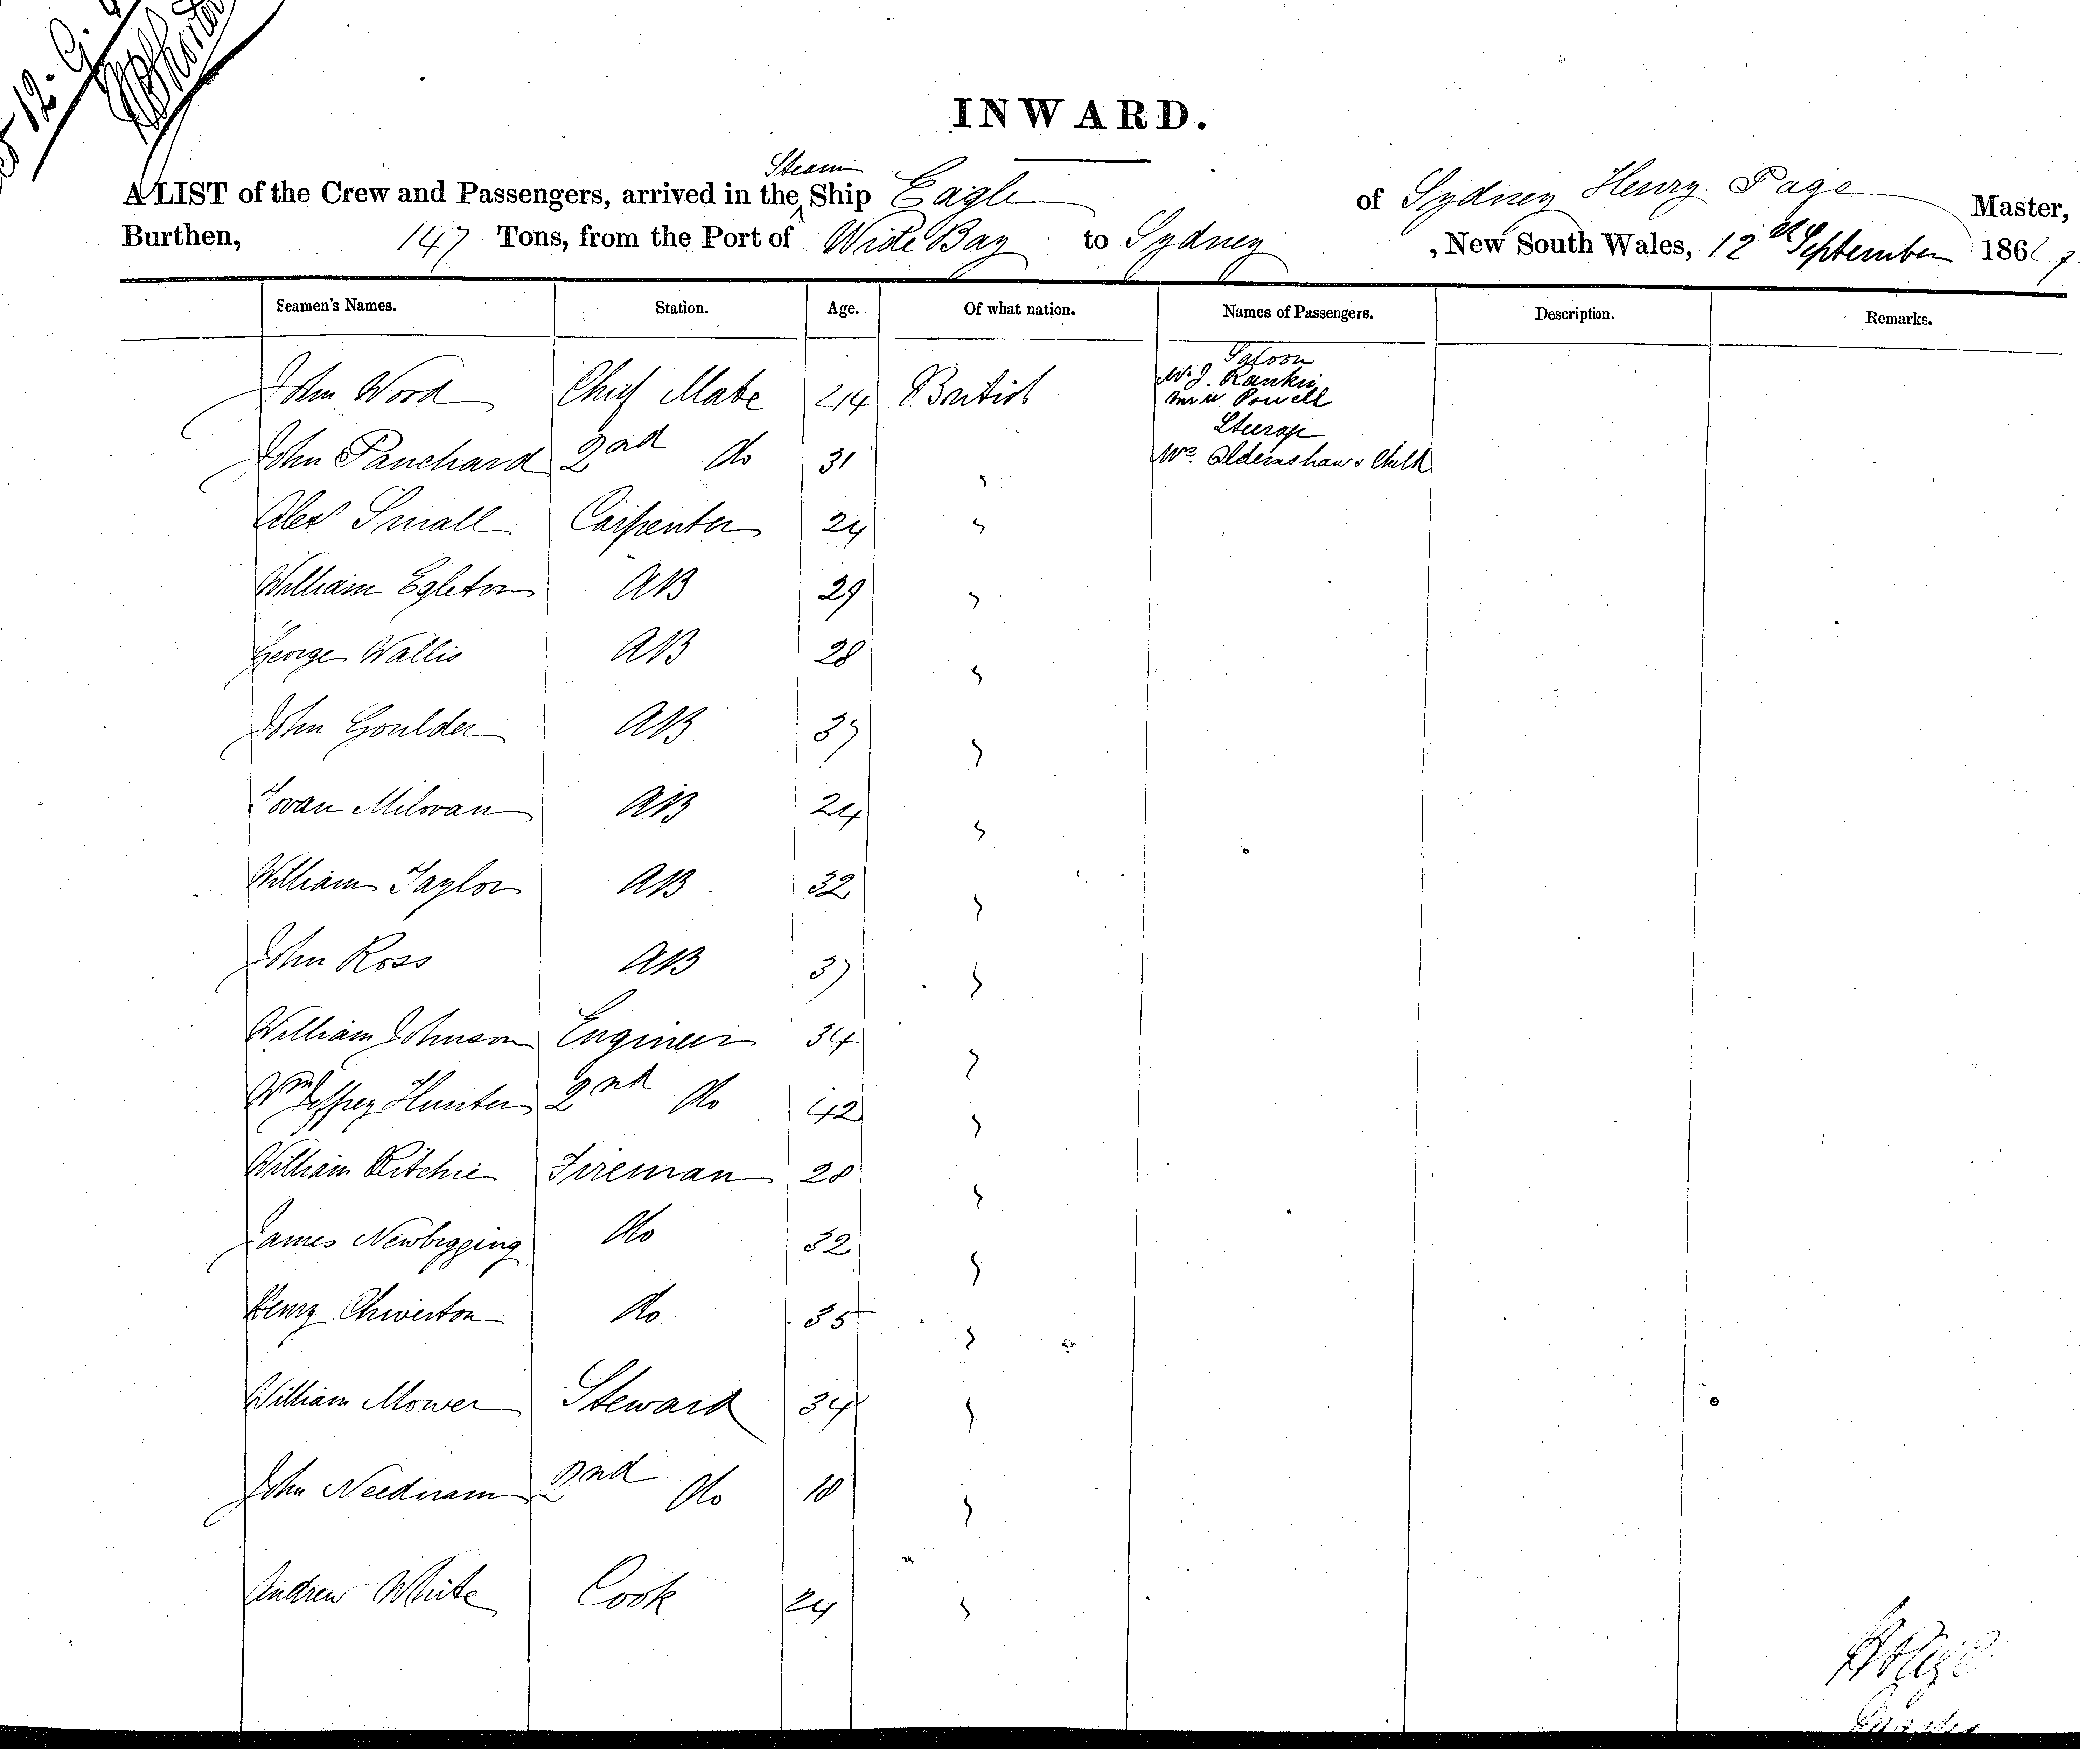 12
INWARD.
A LIST of the Crew and Passengers, arrived in the Steam Ship Eagle of Sydney Henry Page Master,
Burthen, 147 Tons, from the Port of Wide Bay to Sydney, New South Wales, 12th September 1867
Seamen's Names. Station. Age. Of what nation. Names of Passengers. Description. Remarks.
Saloon
John Wood Chief Mate 44 British W. J. Rankin
Powell
Steerage
John Panchard 2nd Do 31 " Mrs. Oldenshaw & Child
Alex Small Carpenter 24 "
William Egleton AB 29 "
George Wallis AB 28 "
John Goulder AB 37 "
Jovan Milovan AB 24 "
William Taylor AB 32 "
John Ross AB 37 "
William Johnson Engineer 34 "
Wm Jeffrey Hunter 2nd Do 42 "
William Ritchie Fireman 28 "
James Newbigging Do 32 "
Henry Chiverton Do 35 "
William Mower Steward 34 "
John Neednam 2nd Do 18 "
Andrew White Cook 24 "